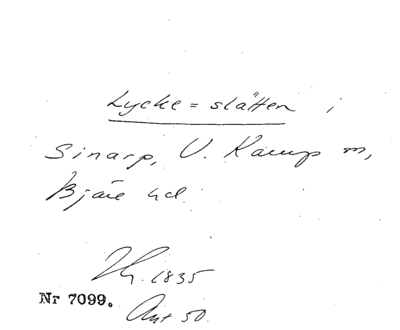 Lycke = slätten i
Sinarp, V. Karup sn,
Bjäre hd
1835
Nr 7099.
Ant 50